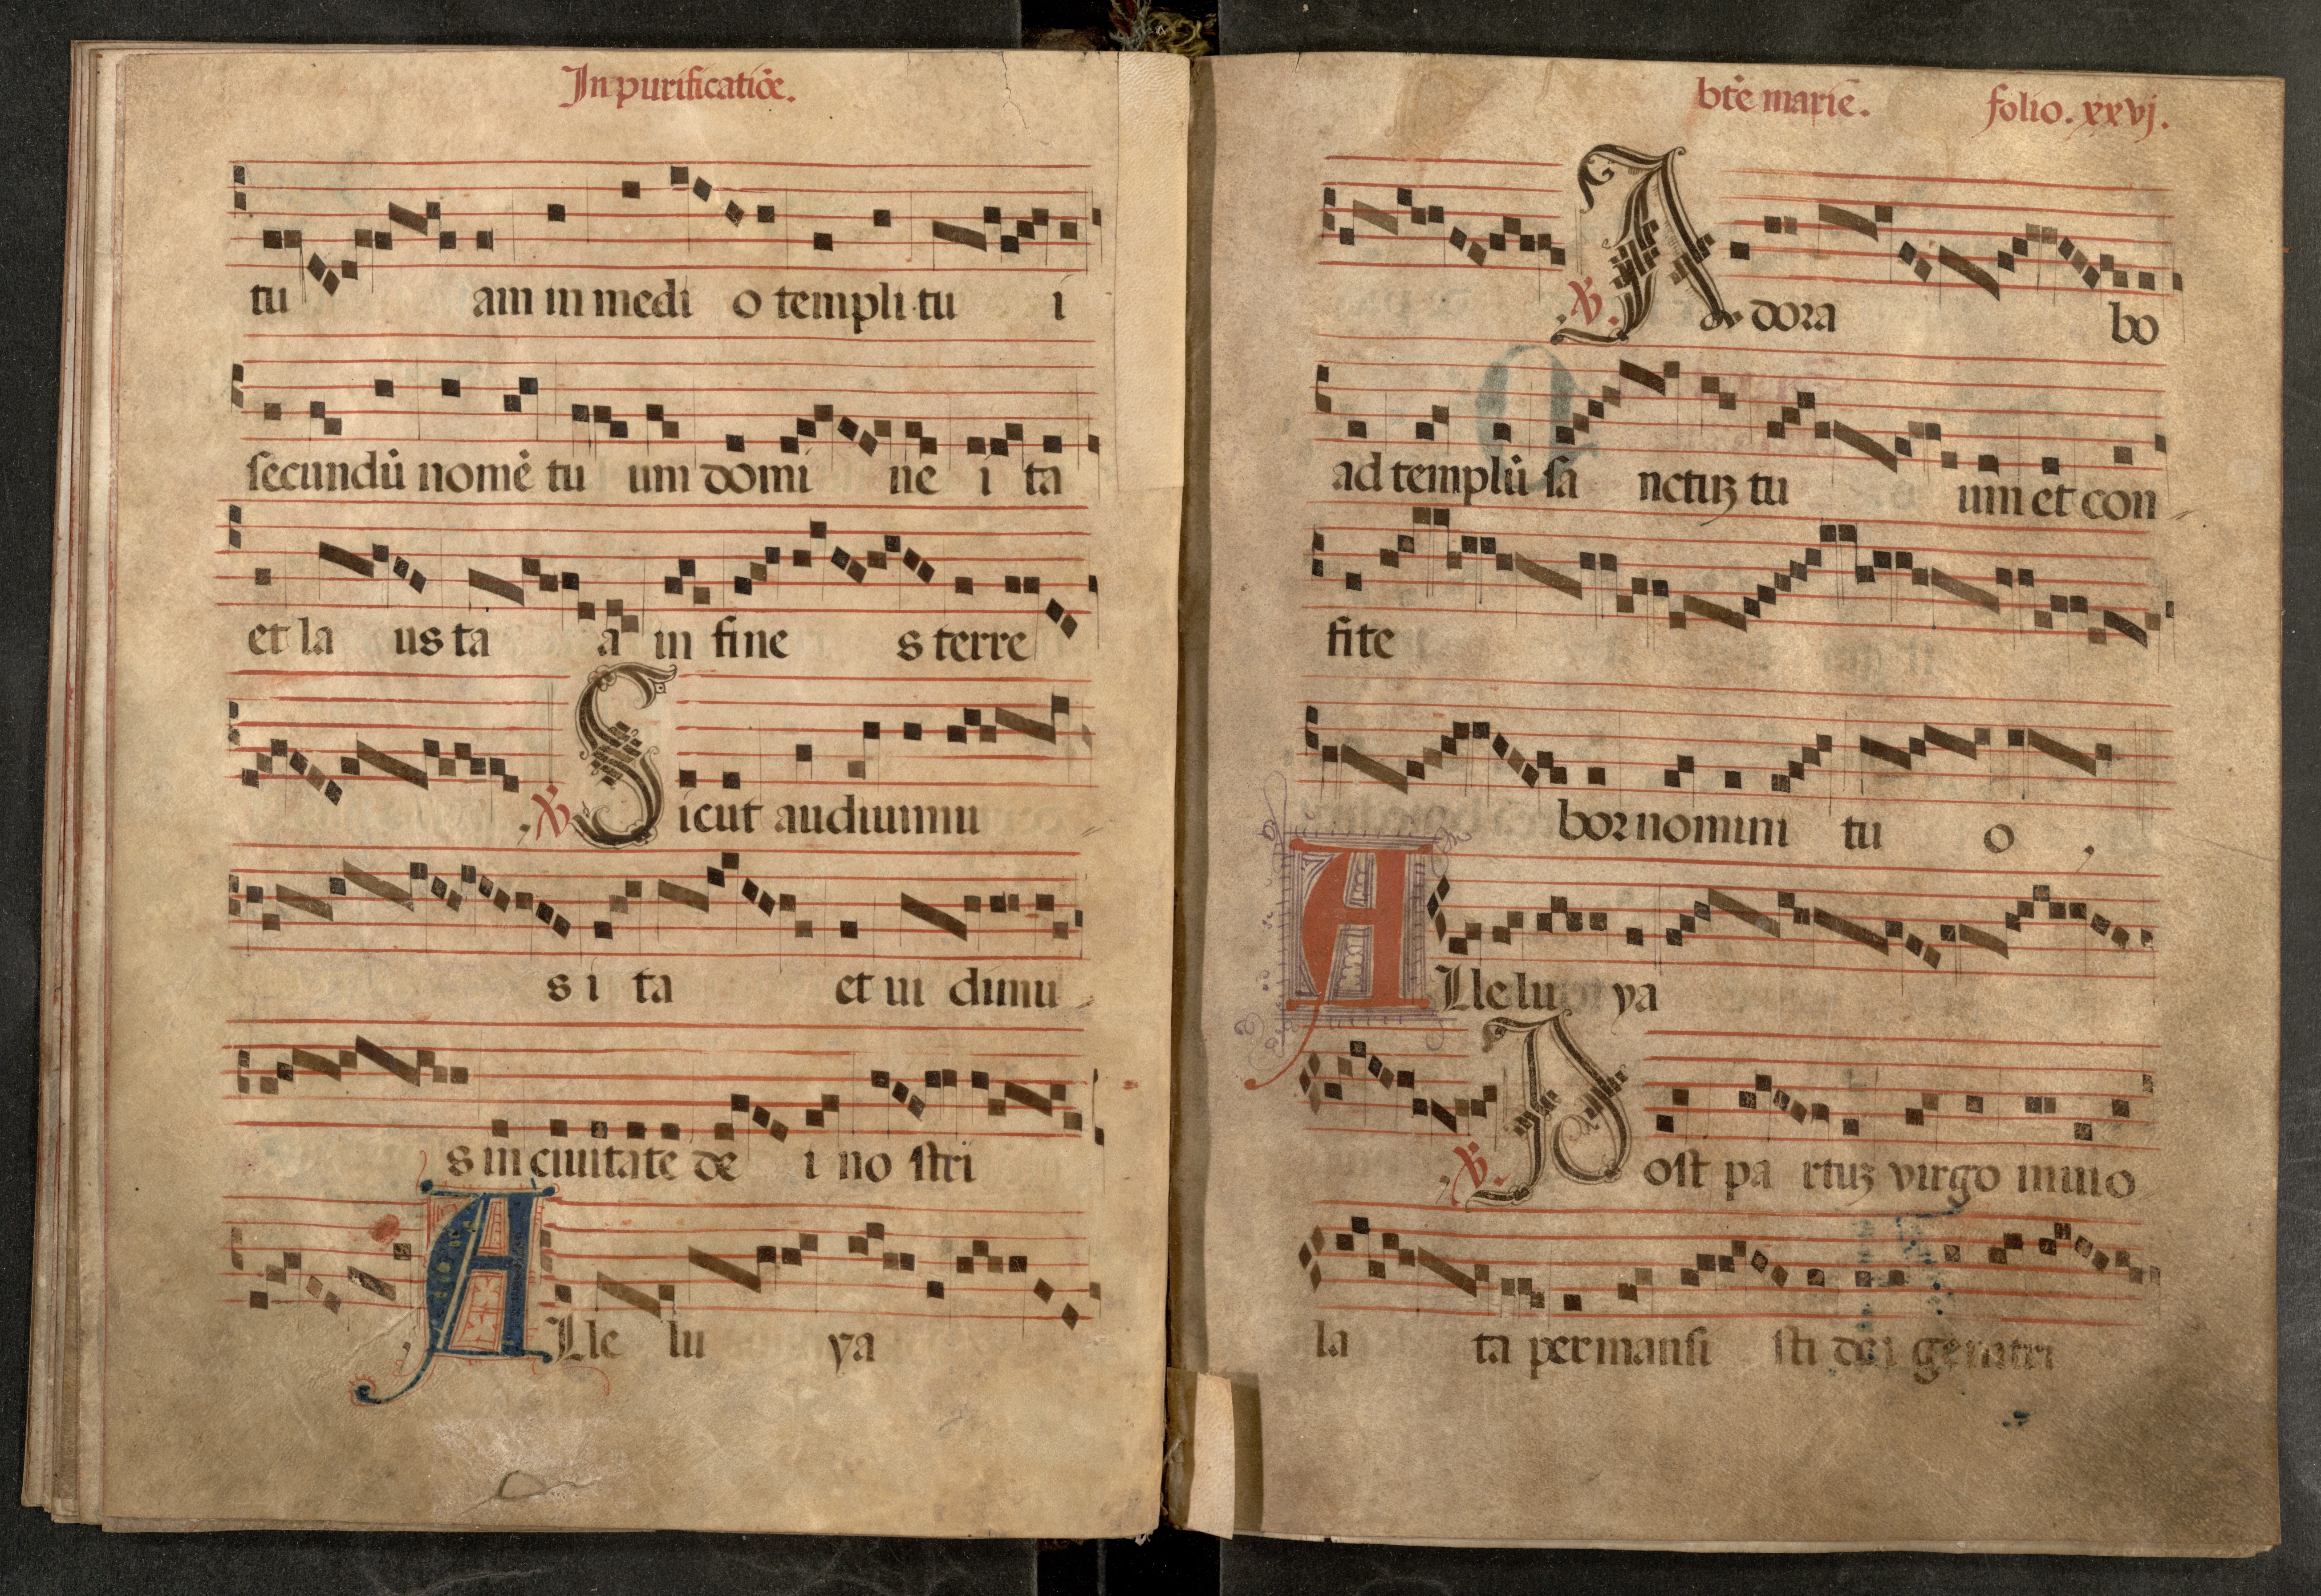 In purificatiōe.
tu am in medi o templi tu i
secundū nomē tu um domi ne i ta
et la us ta a in fine s terre
℣. Sicut audiuimu
s i ta et ui dimu
s in ciuitate de i no stri
Alle lu ya
btē marie. folio. xxvj.
℣. A dora bo
ad templū sa nctuꝫ tu um et con
fite
bor nomini tu o
Alle lu ya
℣. Post pa rtuꝫ virgo inuio
la ta permansi sti dei genitri